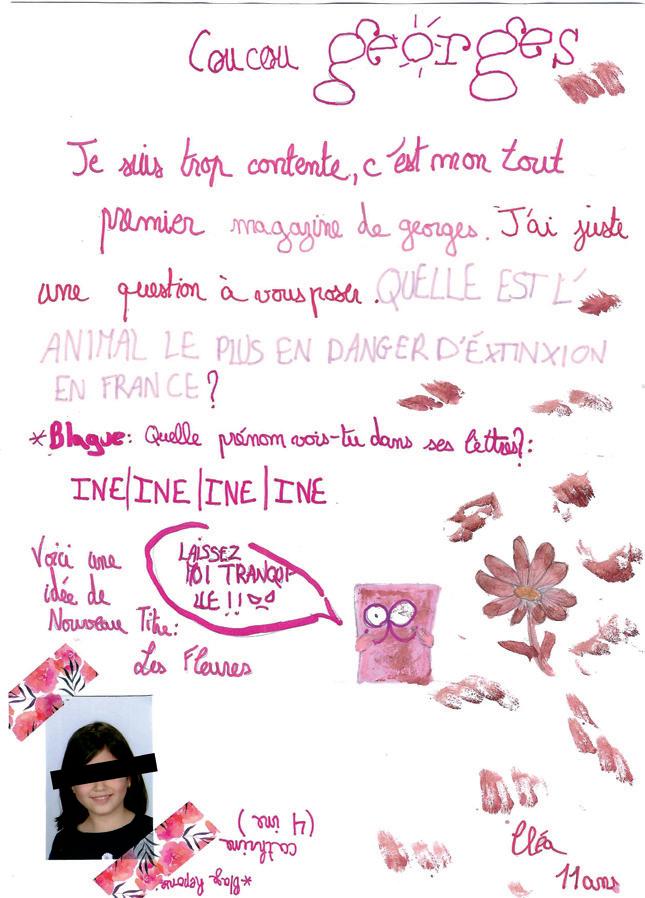 Coucou georges
Je suis trop contente, c'est mon tout
premier magazine de georges. J'ai juste
une question à vous poser. QUELLE EST L'
ANIMAL LE PLUS EN DANGER D'ÉXTINXION
EN FRANCE?
*Blague: Quelle prénom vois-tu dans ses lettres?:
INE|INE|INE|INE
LAISSEZ
MOI TRANQUI
LLE!!
Voici une
idée de
Nouveau Titre:
Les Fleures
*Blage Réponse:
cathrine
(4 ine)
Cléa
11 ans